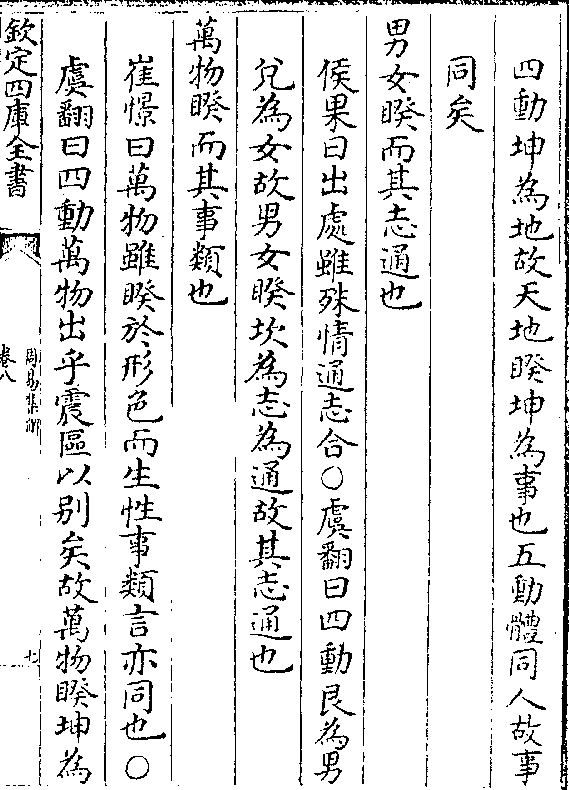 四動坤為地故天地睽坤為事也五動體同人故事
同矣
男女睽而其志通也
侯果曰出處雖殊情通志合○虞翻曰四動艮為男
兌為女故男女睽坎為志為通故其志通也
萬物睽而其事類也
崔憬曰萬物雖睽於形色而生性事類言亦同也○
虞翻曰四動萬物出乎震區以别矣故萬物睽坤為
欽定四庫全書
周易集解
卷八
七